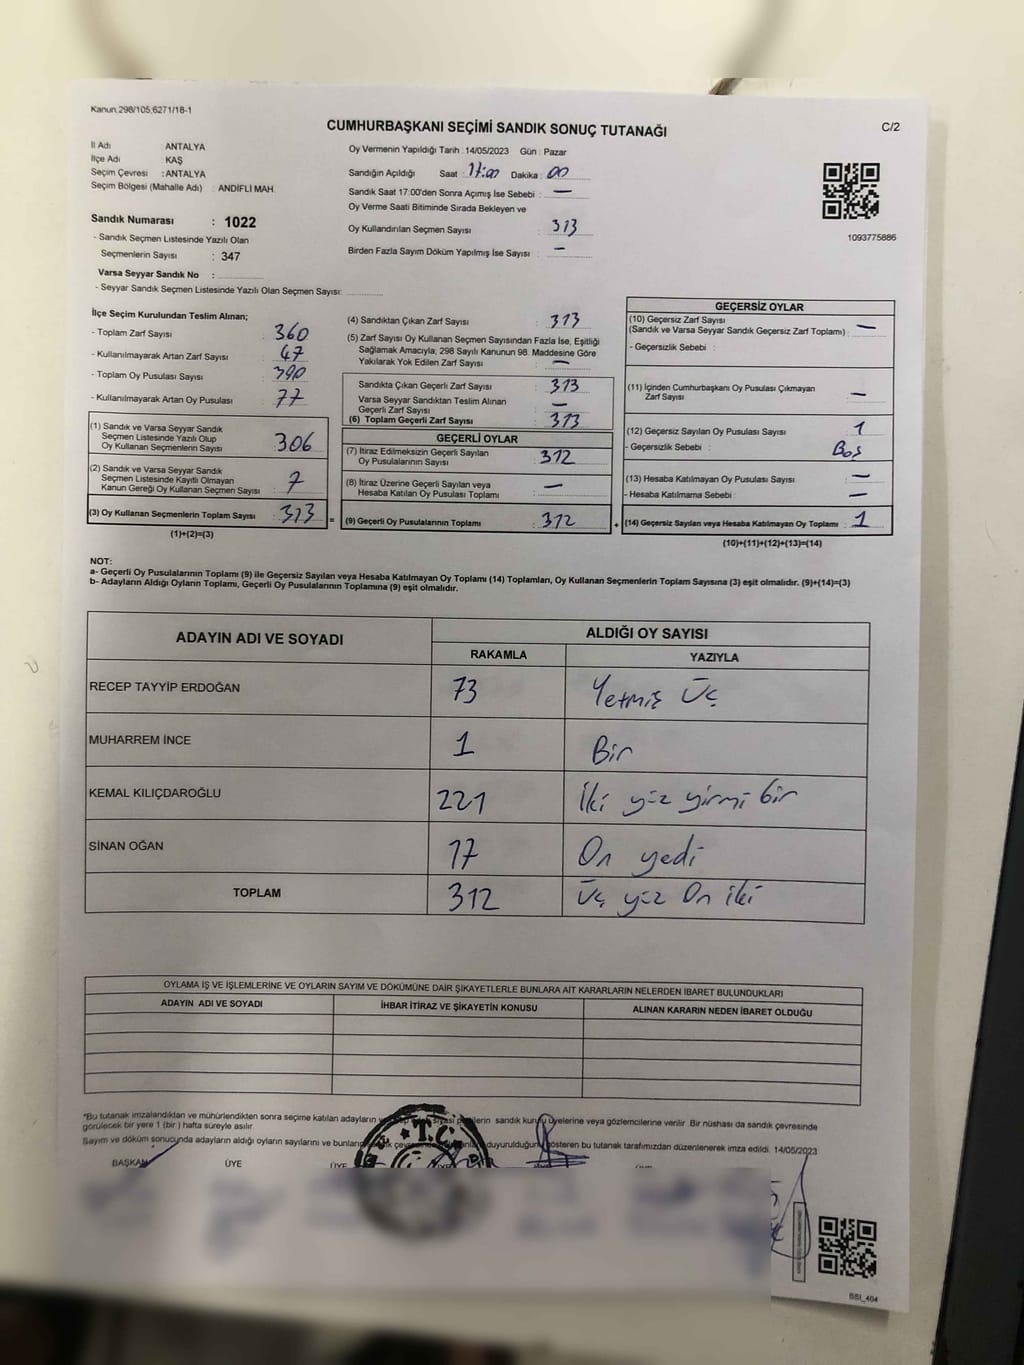 Kanun:298/105;6271/18-1
CUMHURBAŞKANI SEÇİMİ SANDIK SONUÇ TUTANAĞI
C/2
İl Adı ANTALYA
İlçe Adı KAŞ
Seçim Çevresi : ANTALYA
Seçim Bölgesi (Mahalle Adı) : ANDİFLİ MAH.
Oy Vermenin Yapıldığı Tarih : 14/05/2023 Gün : Pazar
Sandığın Açıldığı Saat : 17:00 Dakika : 00
Sandık Saat 17:00'den Sonra Açımış İse Sebebi : —
Oy Verme Saati Bitiminde Sırada Bekleyen ve
Oy Kullandırılan Seçmen Sayısı : 313
Birden Fazla Sayım Döküm Yapılmış İse Sayısı : —
1093775886
Sandık Numarası : 1022
- Sandık Seçmen Listesinde Yazılı Olan
Seçmenlerin Sayısı : 347
Varsa Seyyar Sandık No :
- Seyyar Sandık Seçmen Listesinde Yazılı Olan Seçmen Sayısı:
İlçe Seçim Kurulundan Teslim Alınan;
- Toplam Zarf Sayısı : 360
- Kullanılmayarak Artan Zarf Sayısı : 47
- Toplam Oy Pusulası Sayısı : 390
- Kullanılmayarak Artan Oy Pusulası : 77
(1) Sandık ve Varsa Seyyar Sandık
Seçmen Listesinde Yazılı Olup
Oy Kullanan Seçmenlerin Sayısı : 306
(2) Sandık ve Varsa Seyyar Sandık
Seçmen Listesinde Kayıtlı Olmayan
Kanun Gereği Oy Kullanan Seçmen Sayısı : 7
(3) Oy Kullanan Seçmenlerin Toplam Sayısı : 313 =
(1)+(2)=(3)
(4) Sandıktan Çıkan Zarf Sayısı : 313
(5) Zarf Sayısı Oy Kullanan Seçmen Sayısından Fazla İse, Eşitliği
Sağlamak Amacıyla, 298 Sayılı Kanunun 98. Maddesine Göre
Yakılarak Yok Edilen Zarf Sayısı : —
Sandıkta Çıkan Geçerli Zarf Sayısı : 313
Varsa Seyyar Sandıktan Teslim Alınan
Geçerli Zarf Sayısı : —
(6) Toplam Geçerli Zarf Sayısı : 313
GEÇERLİ OYLAR
(7) İtiraz Edilmeksizin Geçerli Sayılan
Oy Pusulalarının Sayısı : 312
(8) İtiraz Üzerine Geçerli Sayılan veya
Hesaba Katılan Oy Pusulası Toplamı : —
(9) Geçerli Oy Pusulalarının Toplamı : 312 +
GEÇERSİZ OYLAR
(10) Geçersiz Zarf Sayısı
(Sandık ve Varsa Seyyar Sandık Geçersiz Zarf Toplamı) : —
- Geçersizlik Sebebi :
(11) İçinden Cumhurbaşkanı Oy Pusulası Çıkmayan
Zarf Sayısı : —
(12) Geçersiz Sayılan Oy Pusulası Sayısı : 1
- Geçersizlik Sebebi : Boş
(13) Hesaba Katılmayan Oy Pusulası Sayısı : —
- Hesaba Katılmama Sebebi : —
(14) Geçersiz Sayılan veya Hesaba Katılmayan Oy Toplamı : 1
(10)+(11)+(12)+(13)=(14)
NOT:
a- Geçerli Oy Pusulalarının Toplamı (9) ile Geçersiz Sayılan veya Hesaba Katılmayan Oy Toplamı (14) Toplamları, Oy Kullanan Seçmenlerin Toplam Sayısına (3) eşit olmalıdır. (9)+(14)=(3)
b- Adayların Aldığı Oyların Toplamı, Geçerli Oy Pusulalarının Toplamına (9) eşit olmalıdır.
ADAYIN ADI VE SOYADI ALDIĞI OY SAYISI
RAKAMLA YAZIYLA
RECEP TAYYİP ERDOĞAN 73 Yetmiş Üç
MUHARREM İNCE 1 Bir
KEMAL KILIÇDAROĞLU 221 İki yüz yirmi bir
SİNAN OĞAN 17 On yedi
TOPLAM 312 Üç yüz On iki
OYLAMA İŞ VE İŞLEMLERİNE VE OYLARIN SAYIM VE DÖKÜMÜNE DAİR ŞİKAYETLERLE BUNLARA AİT KARARLARIN NELERDEN İBARET BULUNDUKLARI
ADAYIN ADI VE SOYADI İHBAR İTİRAZ VE ŞİKAYETİN KONUSU ALINAN KARARIN NEDEN İBARET OLDUĞU
*Bu tutanak imzalandıktan ve mühürlendikten sonra seçime katılan adayların sandık kurulu üyelerine veya gözlemcilerine verilir. Bir nüshası da sandık çevresinde
görülecek bir yere 1 (bir ) hafta süreyle asılır.
Sayım ve döküm sonucunda adayların aldığı oyların sayılarını ve bunların duyurulduğunu gösteren bu tutanak tarafımızdan düzenlenerek imza edildi. 14/05/2023
T.C.
BAŞKAN ÜYE ÜYE
BSI_404